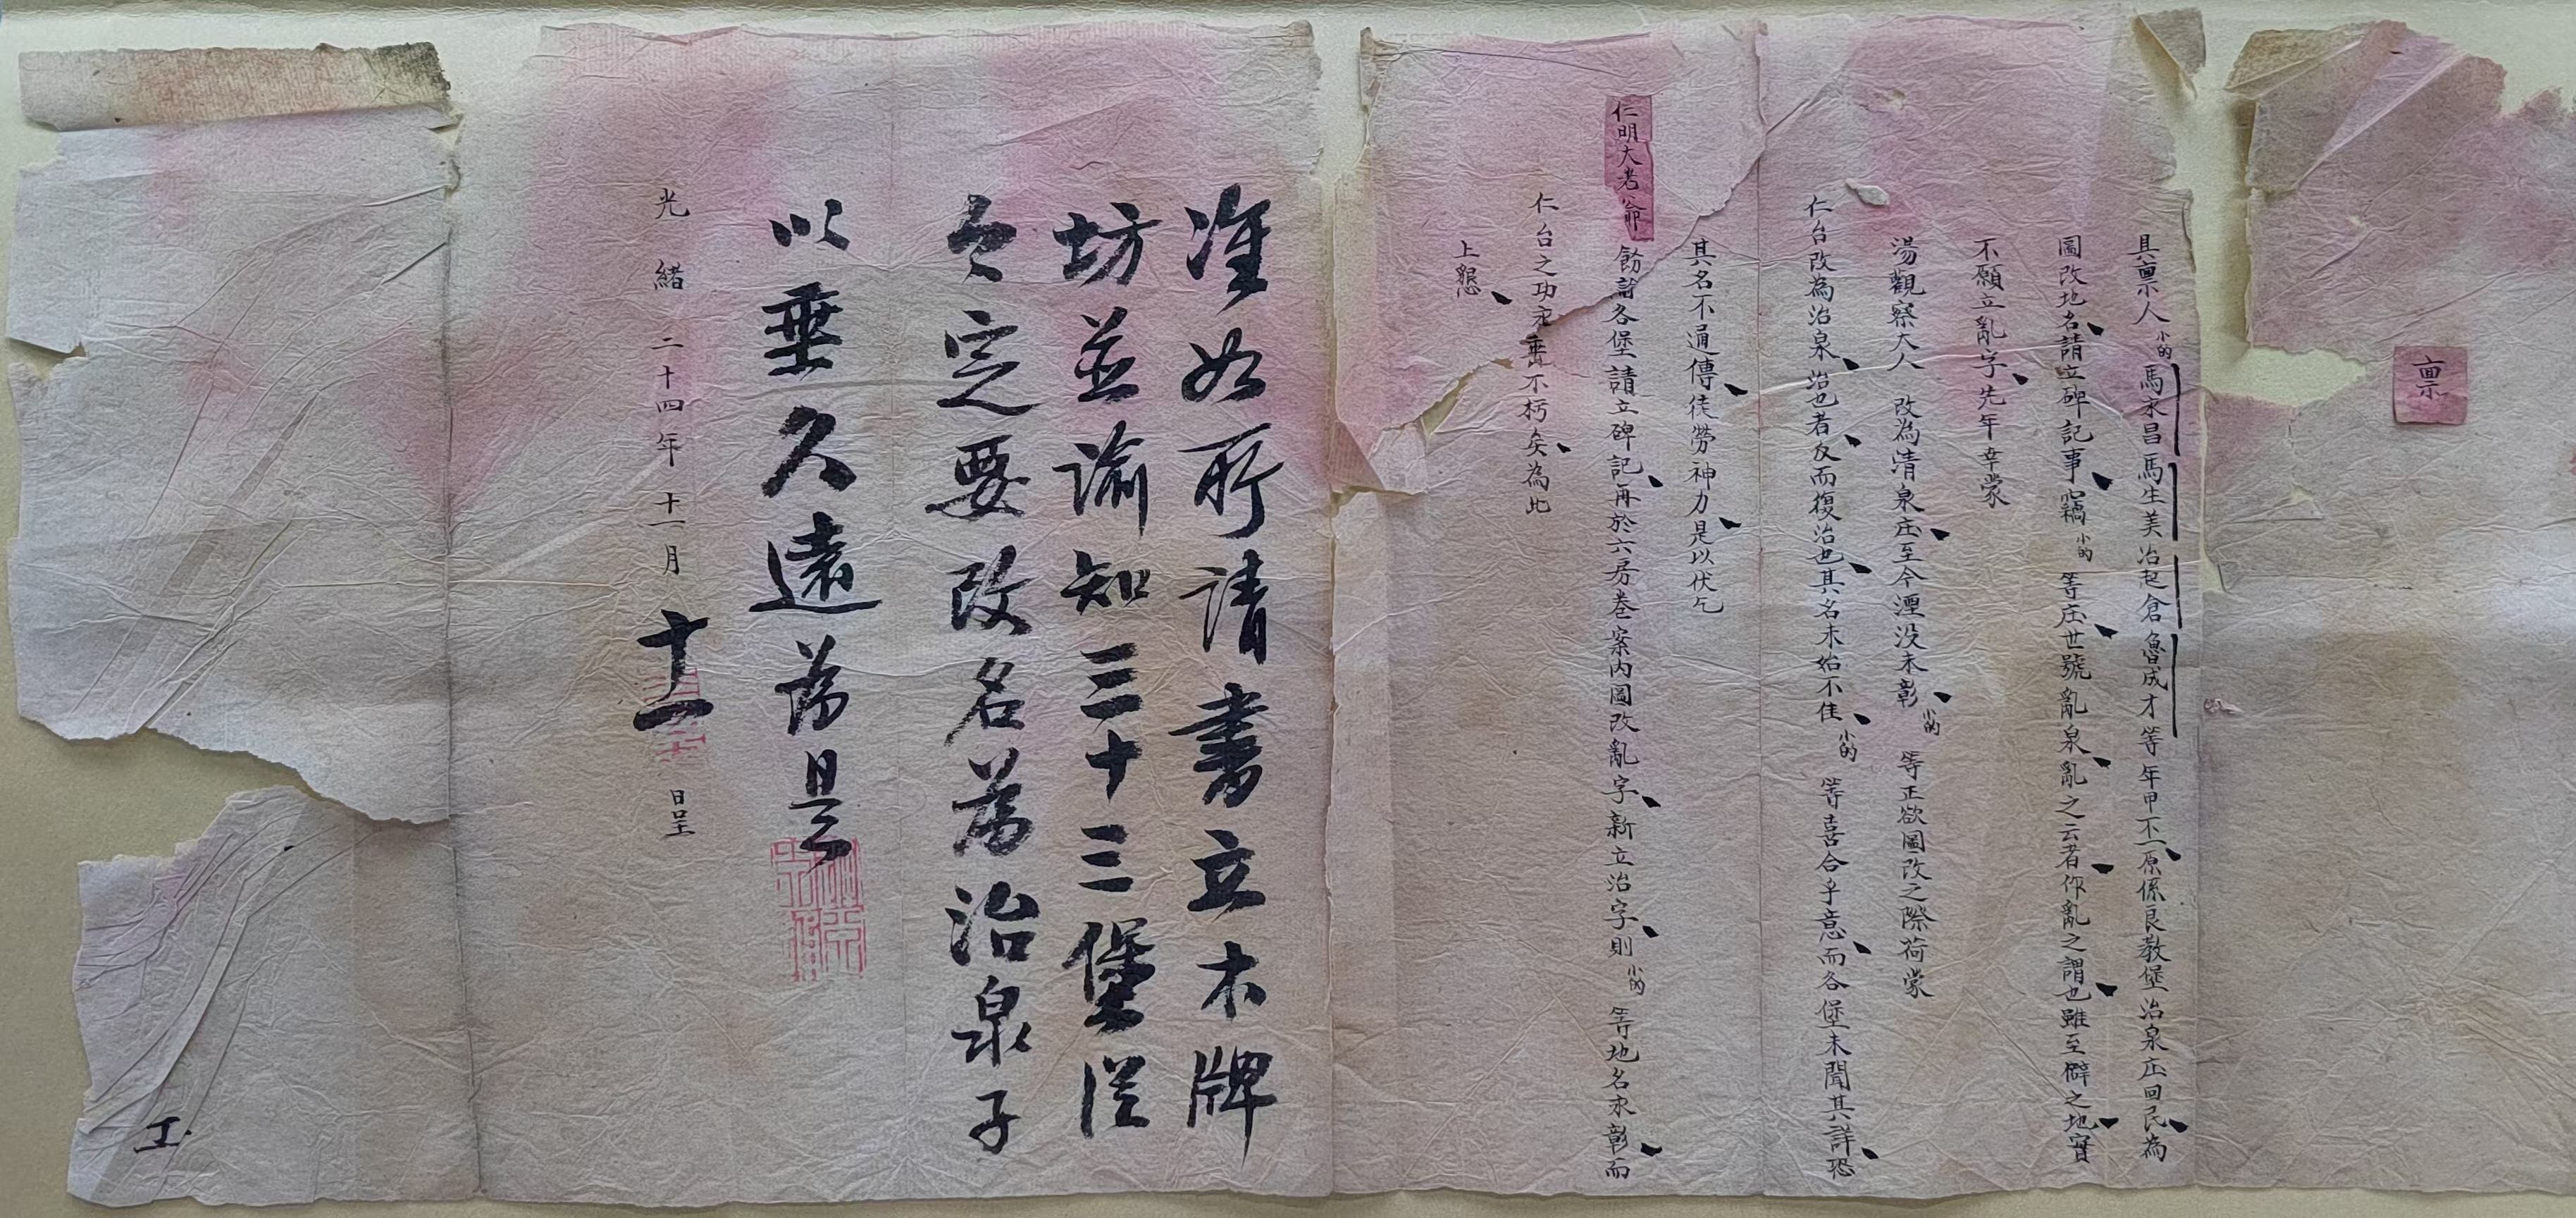 稟
具稟人小的馬永昌馬生美冶起倉魯成才等年甲不一原係良教堡治泉庄回民為
圖改地名請立碑記事竊小的等庄世號亂泉亂之云者作亂之謂也雖至僻之地實
不願立亂字先年幸蒙
湯觀察大人改為清泉庄至今湮没未彰小的等正欲圖改之際荷蒙
仁台改為治泉治也者反而復治也其名未始不佳小的等喜合乎意而各堡未聞其詳恐
其名不通傳徒勞神力是以伏乞
仁明大老爺飭諭各堡請立碑記再於六房卷案内圖改亂字新立治字則小的等地名永彰而
仁台之功永垂不朽矣為此
上懇
准如所请書立木牌
坊並諭知三十三堡从
今定要改名為治泉子
以垂久遠為是
光緒二十四年十一月十一日呈
工